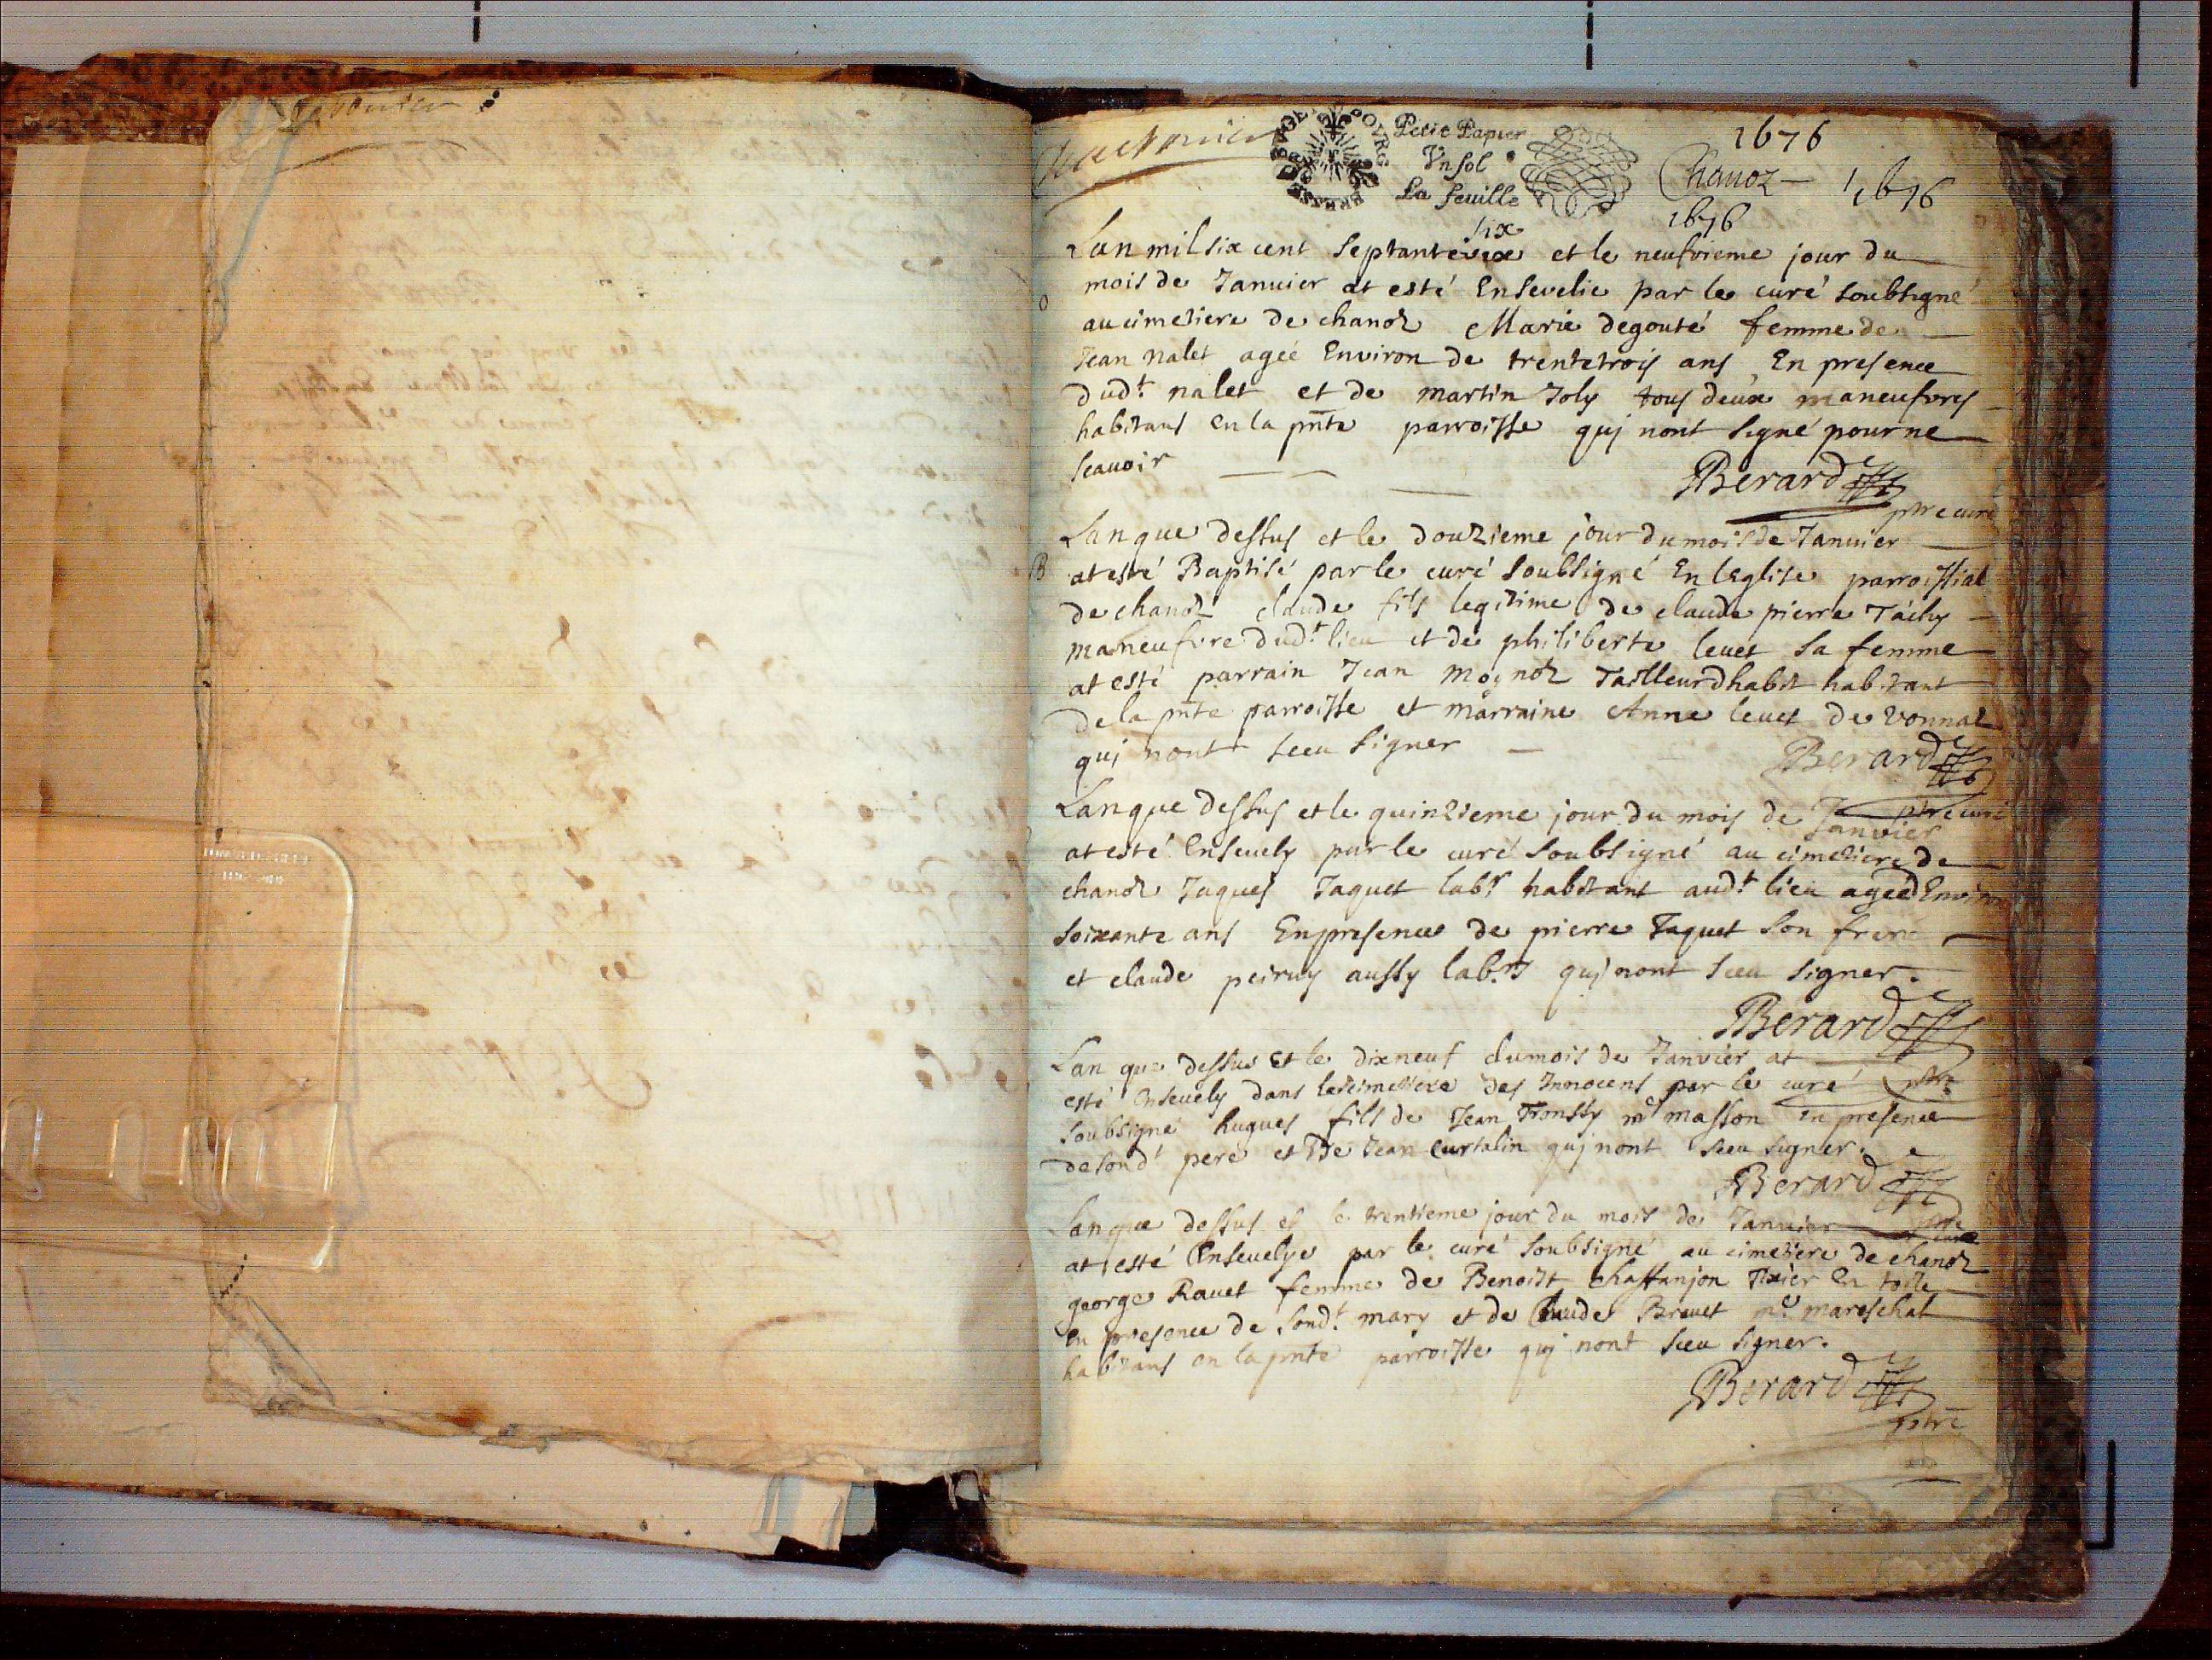 1676
Petit Papier
Vn sol
La feuille
Chanoz 1676
1676
six
Lan mil six cent septante et le neufvieme jour du
mois de Januier at esté Ensevelie par le curé soubsigné
au cimetiere de chanoz Marie degouté femme de
Jean nalet ageé Environ de trentetrois ans En presence
dudt. nalet et de martin Joly tous deux maneufvres
habitans en la pnte parroisse quj nont signé pour ne
scauoir
Berard
ptre curé
Lan que dessus et le douzieme jour du mois de Januier
B
at esté Baptisé par le curé soubsigné En leglise parroissial
de chanoz claude fils legitime de claude pierre Tachy
maneufvre dudt. lieu et de philiberte leuet sa femme
at esté parrain Jean moynoz Tailleur dhabit habitant
de la pnte parroisse et marraine Anne leuet de vonnaz
quj nont sceu signer
Berard
ptre curé
Lan que dessus et le quinzieme jour du mois de
Janvier
at esté Enseuely par le curé soubsigné au cimetiere de
chanoz Jaques Jaquet labr habitant audt. lieu ageé d Environ
soixante ans En presence de pierre Jaquet son frere
et claude peiruy aussy labrs quj nont sceu signer.
Berard
ptre
Lan que dessus et le dixneuf du mois de Janvier at
esté enseuely dans le cimetiere des Innocens par le curé
soubsigné hugues fils de Jean Tronssy me masson en presence
de sondt pere et de Jean curtalin quj nont sceu signer.
Berard
ptre curé
Lan que dessus et le trentieme jour du mois de Januier
at esté Enseuelye par le curé soubsigné au cimetiere de chanoz
george Rauet femme de Benoist chaffanjon tixier en toile
en presence de sondt. mary et de Claude Breuet me. mareschal
habitans en la pnte parroisse quj nont sceu signer.
Berard
ptre